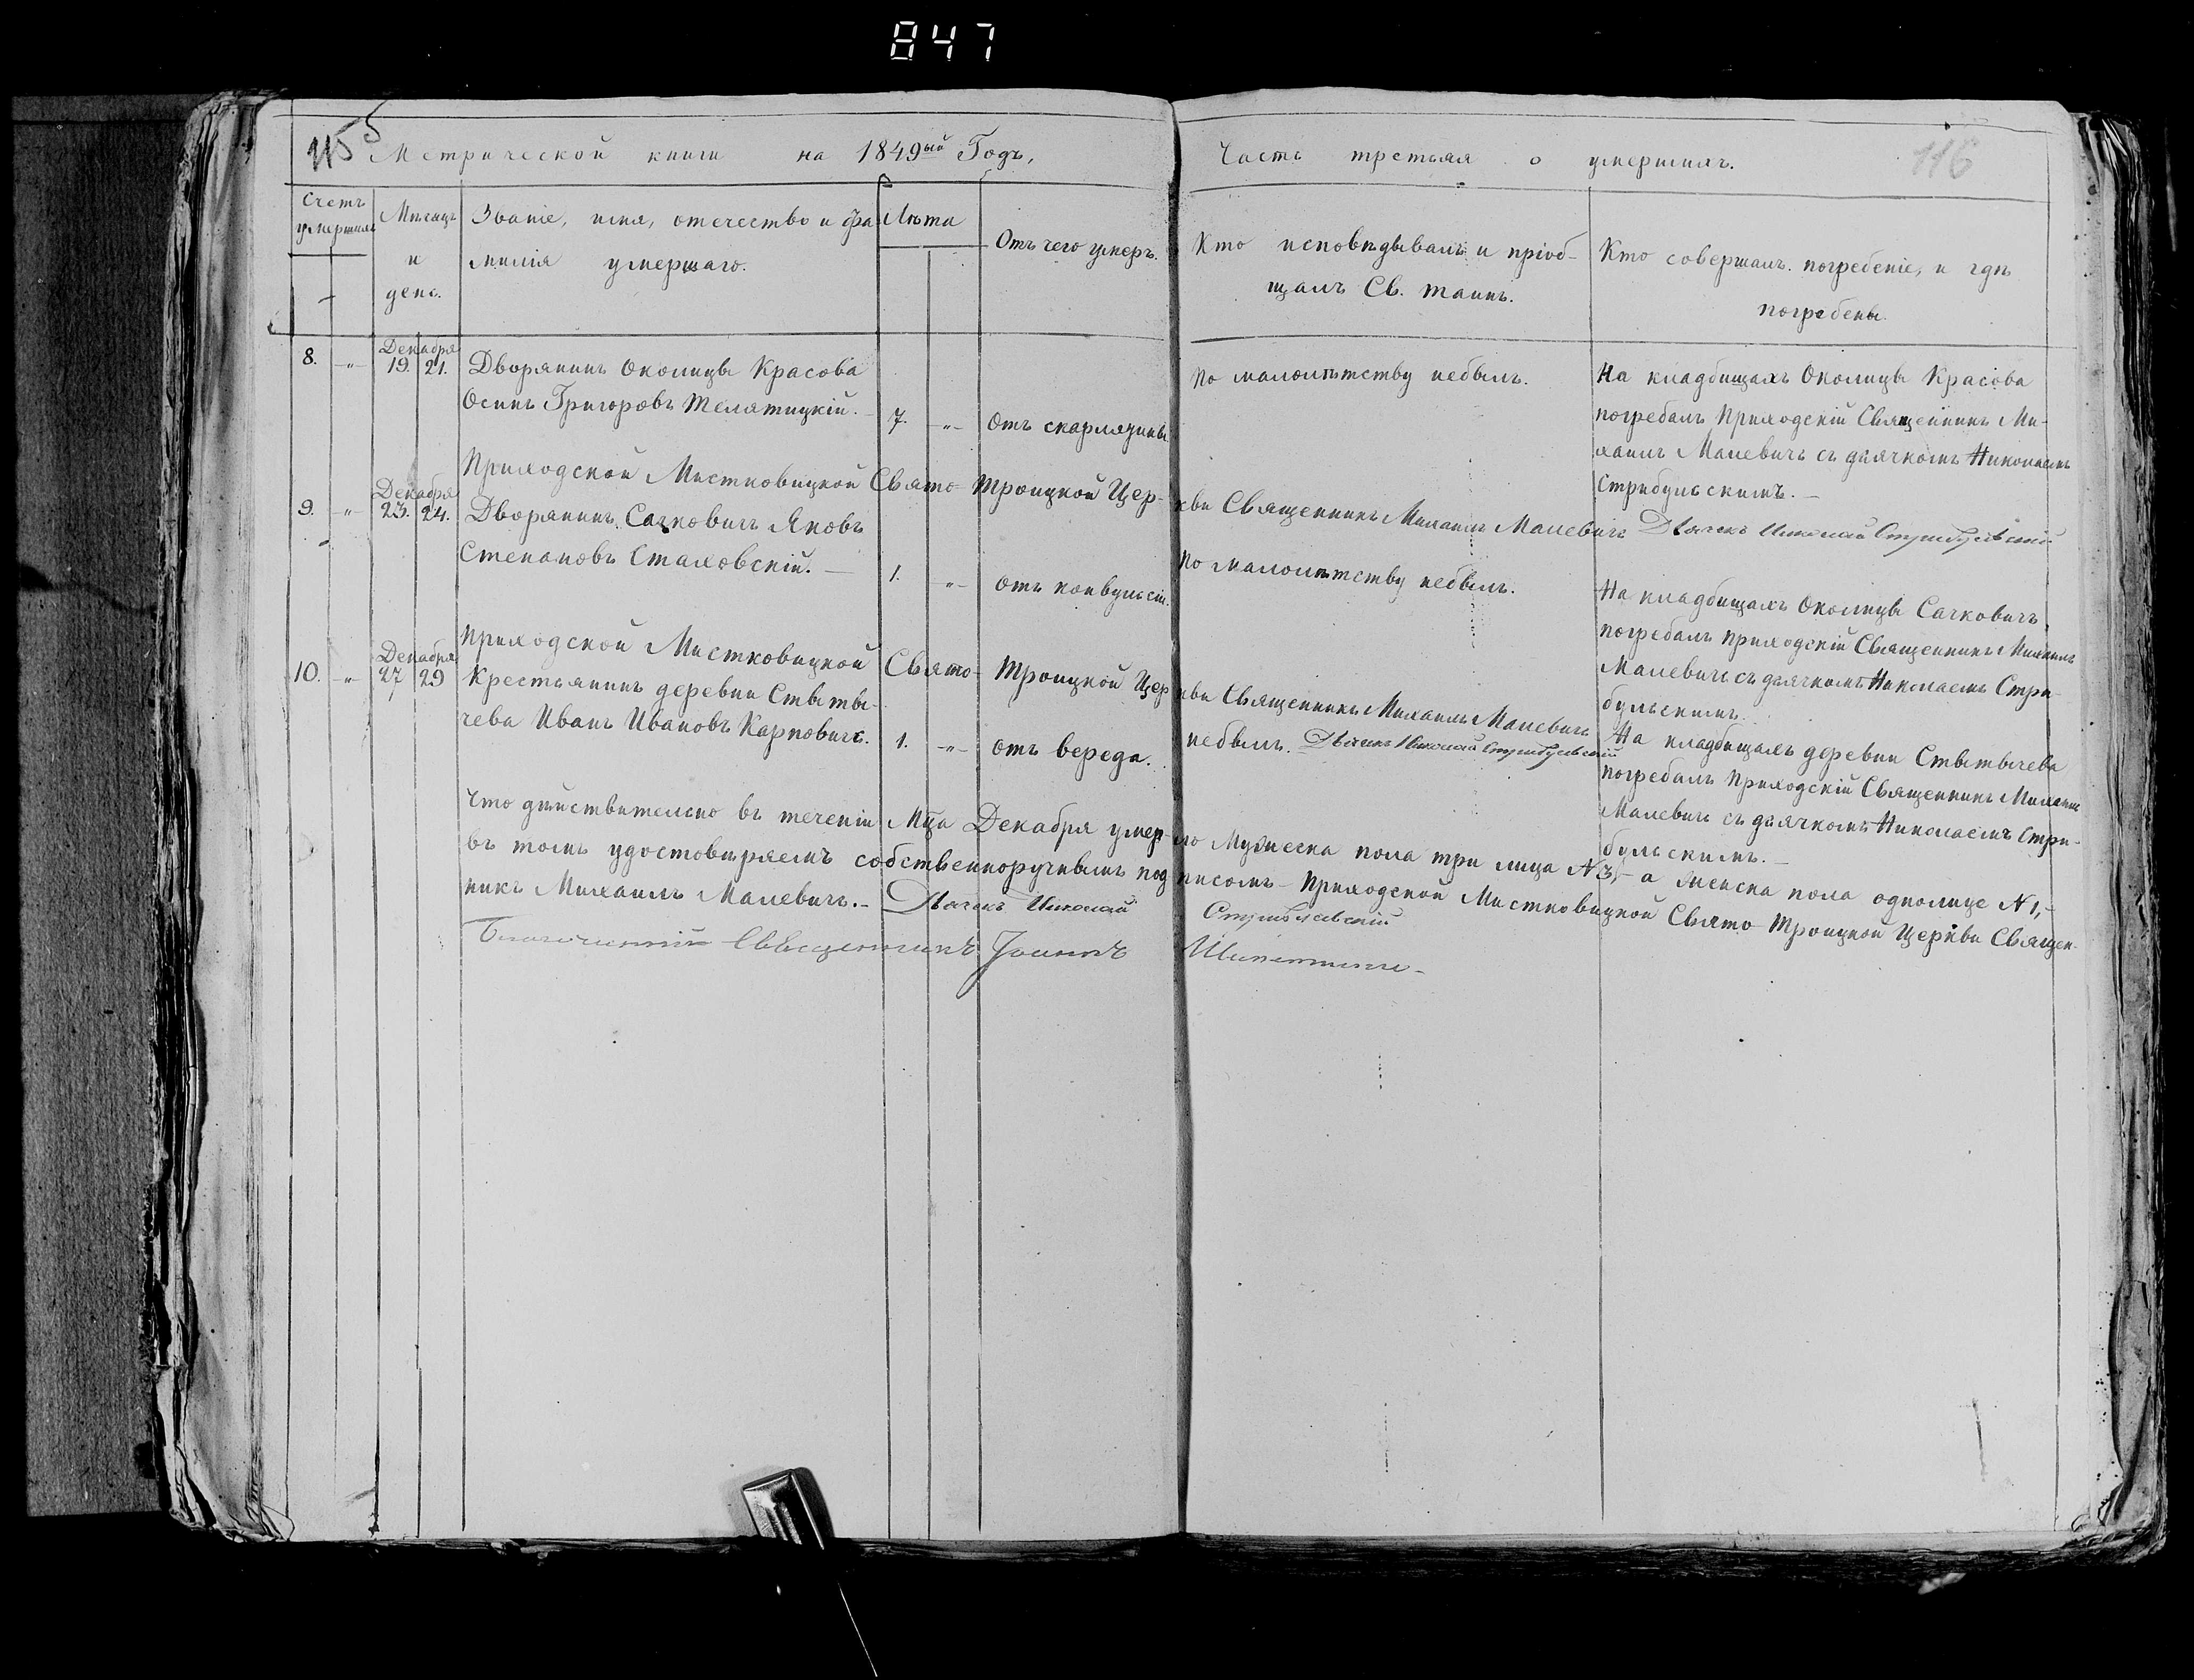 847
115
Метрической книги на 1849ый Годъ,
Часть третьяя о умершихъ.
116
Счетъ умершихъ
Мѣсяцъ и день.
Званіе, имя, отечество и фа-
милія умершаго.
Лѣта
Отъ чего умеръ.
Кто исповѣдывалъ и пріоб-
щалъ Св. таинъ.
Кто совершалъ погребеніе, и гдѣ
погребены.
8. -"- Декабря 19. 21.
Дворянинъ Околицы Красова
Осипъ Григоровъ Телятицкій.
7. -"- Отъ скарлязины
По малолѣтству небылъ.
На кладбищахъ Околицы Красова
погребалъ Приходскій Священникъ Ми-
хаилъ Малевичъ съ дьячкомъ Николаемъ
Стрибульскимъ.
Приходской Мистковицкой Свято- Троицкой Цер- кви Священникъ Михаилъ Малевичъ Дьячекъ Николай Стрибульскій
9. -"- Декабря 23. 24.
Дворянинъ Сачковичъ Яковъ
Степановъ Стаховскій.
1. -"- отъ конвульсіи.
По малолѣтству небылъ.
На кладбищахъ Околицы Сачковичъ
погребалъ приходскій Священникъ Михаилъ
Малевичъ съ дьячкомъ Николаемъ Стри-
бульскимъ.
Приходской Мистковицкой Свято- Троицкой Цер кви Священникъ Михаилъ Малевичъ
Дьячекъ Николай Стрибульскій
10. -"- Декабря 27 29
Крестьянинъ деревни Ствты-
чева Иванъ Ивановъ Карповичъ.
1. -"- отъ вереда.
небылъ.
На кладбищахъ деревни Ствтычева
погребалъ Приходскій Священникъ Михаилъ
Малевичъ съ дьячкомъ Николаемъ Стри-
бульскимъ.
Что дѣйствительно въ теченіи Мца Декабря умер- ло Мужеска пола три лица N 3, а женска пола однолице N 1,
въ томъ удостовѣряемъ собственноручнымъ под писомъ Приходской Мистковицкой Свято Троицкой Церкви Священ-
никъ Михаилъ Малевичъ. Дьячекъ Николай Стрибульскій
Благочинный Священникъ Іоаннъ